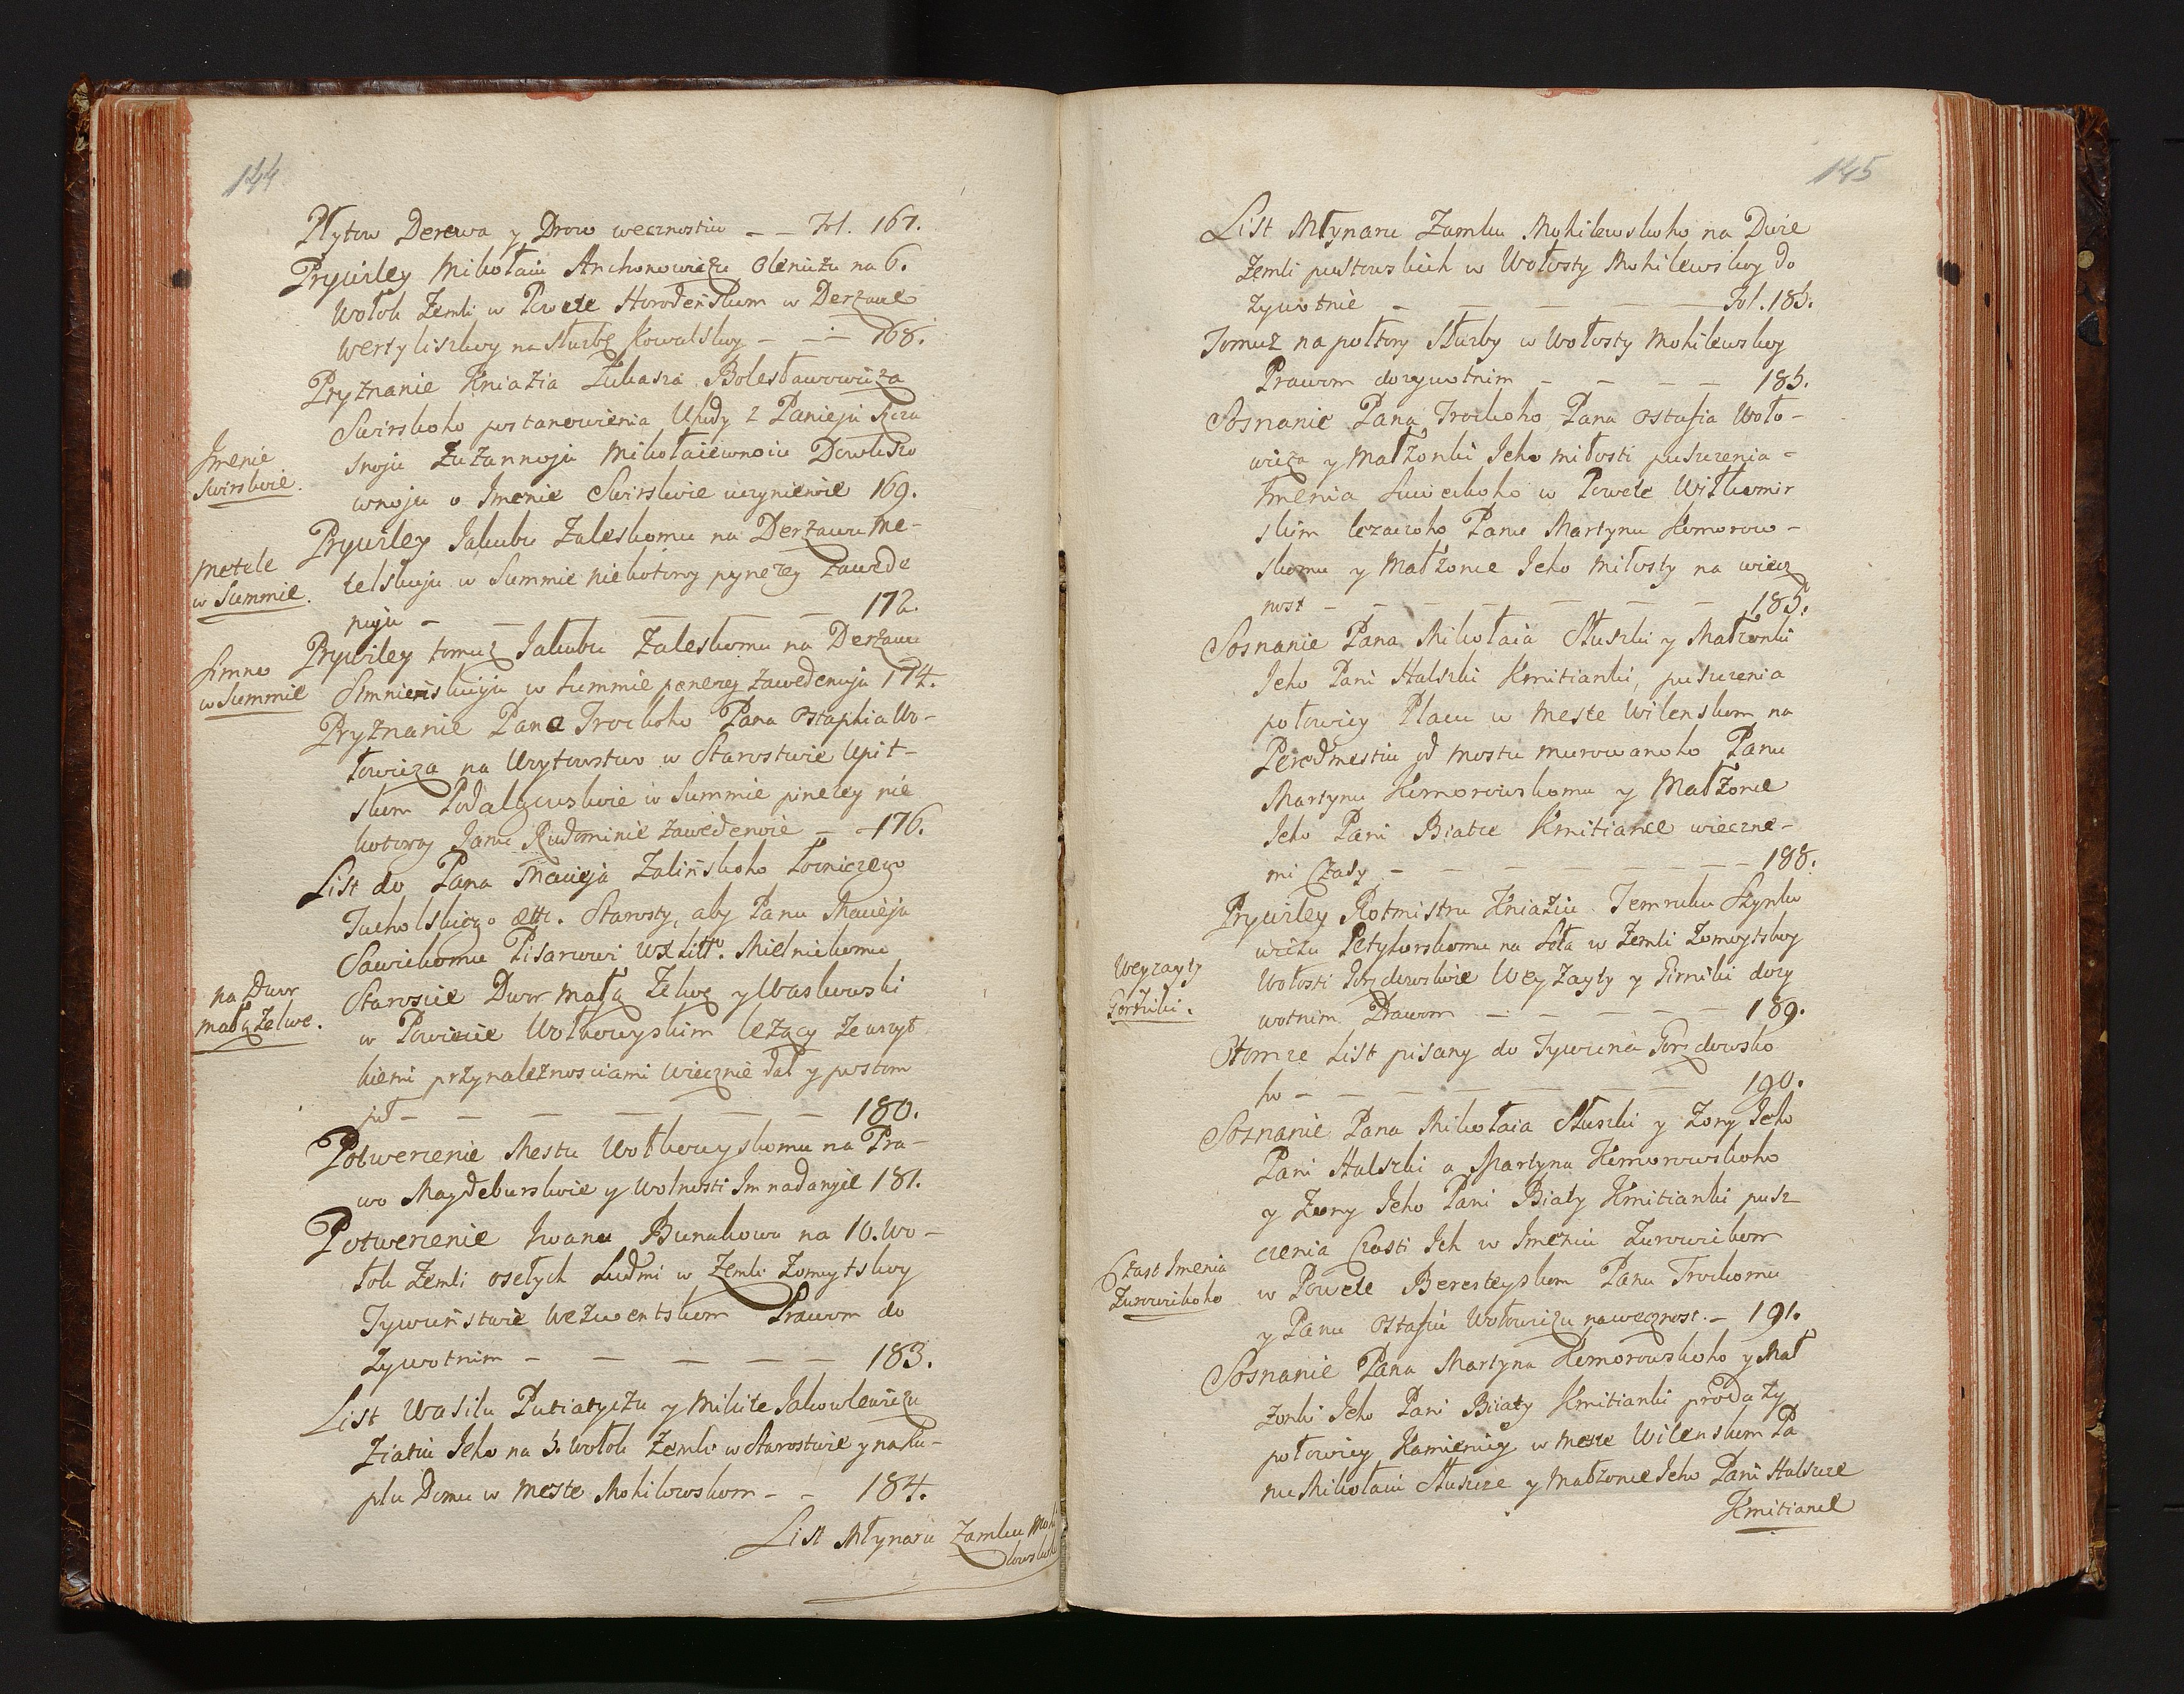 144
Płytow Derewa y Drow wecznostiu _ _ Fol. 167.
Prywiley Mikołaiu Anchonowiczu Oleniczu na 6.
Wołok Zemli w Powete Horodeńskom w Derzawe
Wertyliszkoy na służbę Kowalskoy - - - 168.
Pryznanie Kniazia Łukasza Bolesławowicza
Swirskoho postanowienia Uhody z Panieju Hczu
Imenie
Swirskoie.
snoju Zuzannoju Mikołaiewnoiu Dowkszo
wnoju o Imenie Swirskoie uczynienoie 169.
Prywiley Jakubu Zaleskomu na Derzawu Me-
Metele
w Summie.
telskuju w Summie niekotoroy pyneżey zawede
nuju - _ _ _ _ _ 172.
Prywiley tomuż Jakubu Zaleskomu na Derzawu
Simno
w Summie
Simnieńskuju w Summie peneżey zawedenuju 174.
Pryznanie Pana Trockoho Pana Ostaphia Wo-
łowicza na Woytowstwo w Starostwie Upit-
skom Podalgowskoie w Summie pineżey nie
kotoroy Janu Rudominie zawedenoie _ - 176.
List do Pana Macieja Zalińskoho Łowniczego
Tucholskiego ettc. Starosty, aby Panu Macieju
Sawickomu Pisarowi WXLitt. Mielnickomu
na Dwor
małą Zelwe.
Starosćie Dwor małą Zelwę y Waskowski
w Powiecie Wołkowyskim leżący ze wszyt
kiemi przynależnosciami wiecznie dał y postom
pił - _ _ _ _ _ 180.
Potwerzenie Mestu Wołkowyskomu na Pra-
wo Magdeburskoie y Wolnosti Im nadanyie 181.
Potwerzenie Iwanu Bunakowu na 10. Wo-
łok Zemli osełych Ludmi w Zemli Żomoytskoy
Tywuństwie Wezwentskom Prawom do
żywotnim - _ _ _ _ 183.
List Wasilu Putiatyczu y Mikite Jakowlewiczu
Ziatiu Jeho na 3. Wołok Zemli w Starostwie y na Ku-
plu Domu w Meste Mohilowskom - - 184.
List Młynaru Zamku Mohi
lowskoho
145
List Młynaru Zamku Mohilewskoho na Dwie
Zemli pustowskich w Wołosty Mohilewskoy do
żywotnie - _ _ _ _ Fol. 185.
Tomuż na połtory Służby w Wołosty Mohilewskoy
Prawom dożywotnim - - - - 185.
Soznanie Pana Trockoho Pana Ostafia Woło-
wicza y Małżonki Jeho miłosti puszczenia -
Imenia Suweckoho w Powete Wiłkomir
skim leżaczoho Panu Martynu Komorow-
skomu y Małżonce Jeho Miłosty na wiecz
nost - _ _ _ _ _ 185.
Soznanie Pana Mikołaia Słuszki y Małżonki
Jeho Pani Halszki Kmitianki, puszczenia
połowicy Placu w Meste Wilenskom na
Peredmestiu od mostu murowanoho Panu
Martynu Komorowskomu y Małżonce
Jeho Pani Biatce Kmitiance wieczne-
mi Czasy - _ _ _ _ 188.
Prywiley Rotmistru Kniaziu Temruku Szynko
wiczu Petyhorskomu na Soła w Zemli Żomoytskoy
Weyzayty
Gorżniki.
Wołosti Gorżdowskoie Weyzayty y Girniki doży
wotnim Prawom - - - - - 189.
O tomże List pisany do Tywuna Gorżdowsko
ho - _ _ _ _ _ 190.
Soznanie Pana Mikołaia Słuszki y Żony Jeho
Pani Halszki a Martyna Komorowskoho
y Żony Jeho Pani Biaty Kmitianki pusz
czenia Czasti Jch w Imeniu Zurowickom
Czast Imenia
Zurowickoho
w Powete Beresteyskom Panu Trockomu
y Panu Ostafiu Wołowiczu na wecznost. - 191.
Soznanie Pana Martyna Komorowskoho y Mał
żonki Jeho Pani Biaty Kmitianki prodaży
połowicy Kamienicy w Meste Wilenskom Pa
nu Mikołaiu Słuszce y Małżonce Jeho Pani Halszce
Kmitiance